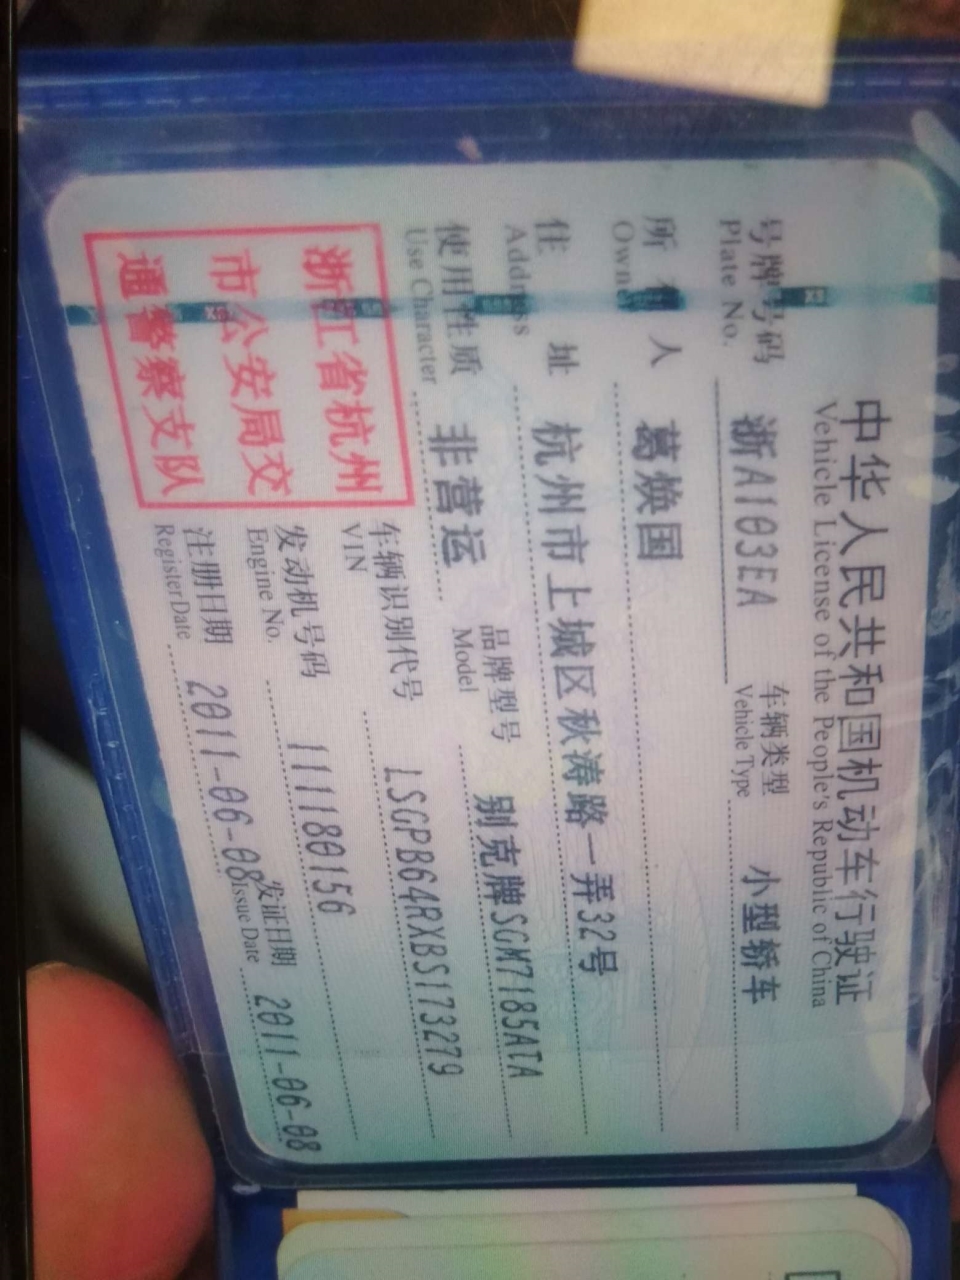 中华人民共和国机动车行驶证
Vehicle License of the People's Republic of China
号牌号码 浙A103EA 车辆类型 小型轿车
Plate No. Vehicle Type
所有人 葛焕国
Owner
住址 杭州市上城区秋涛路一弄32号
Address
使用性质 非营运 品牌型号 别克牌SGM7185ATA
Use Character Model
浙江省杭州
市公安局交
通警察支队
车辆识别代号 LSGPB64RXBS173279
VIN
发动机号码 111180156
Engine No.
注册日期 2011-06-08 发证日期 2011-06-08
Register Date Issue Date